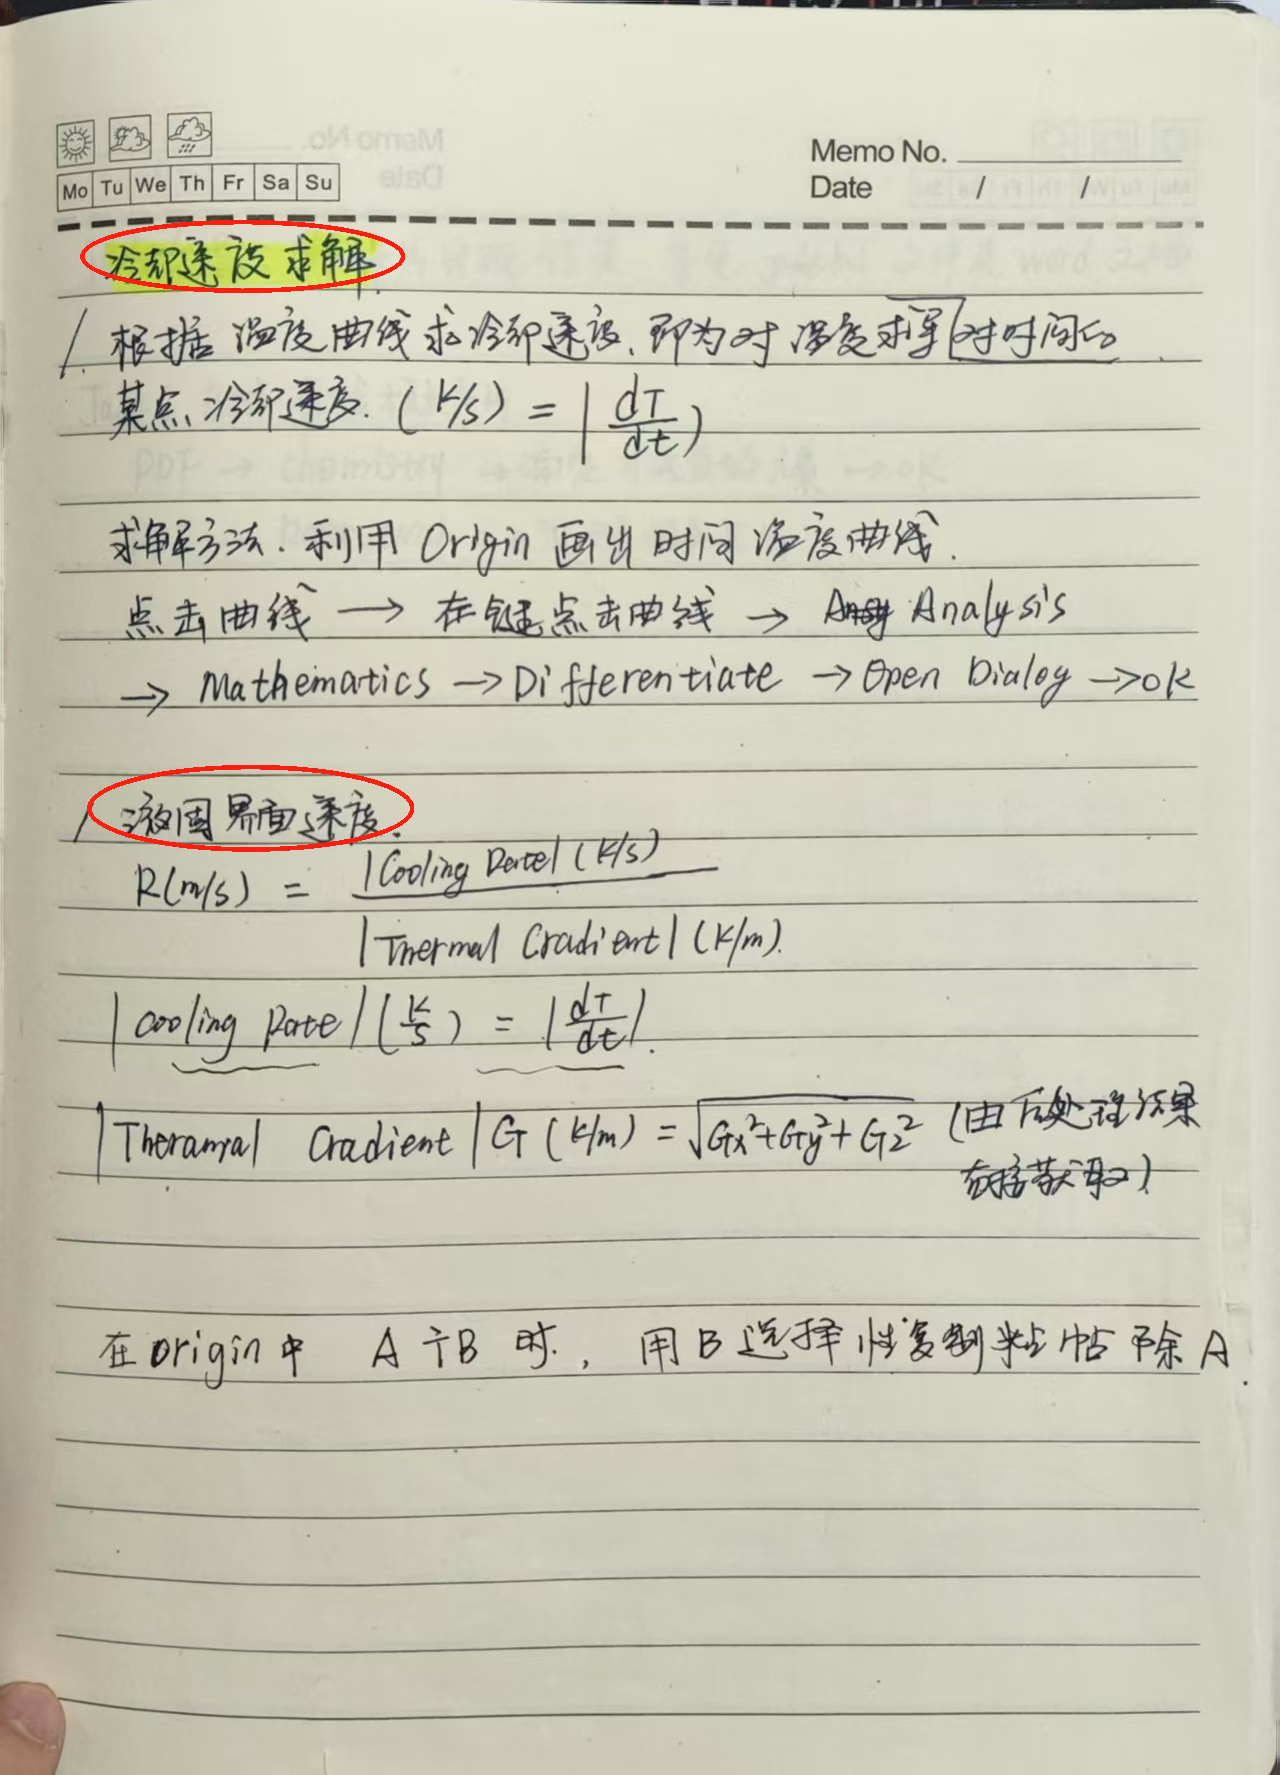 Memo No.
Date / /
Mo Tu We Th Fr Sa Su
冷却速度求解.
1. 根据温度曲线求冷却速度, 即为对温度求导(对时间)
某点冷却速度. (K/s) = |dT/dt)
求解方法. 利用 Origin 画出时间温度曲线.
点击曲线 → 在键点击曲线 → Analysis
→ Mathematics → Differentiate → Open Dialog → OK
液固界面速度.
R(m/s) = |Cooling Rate| (K/s)
|Thermal Cradient| (K/m).
|Cooling Rate| (K/s) = |dT/dt|.
|Theramal Cradient| G (K/m) = √Gx²+Gy²+Gz² (由后处理结果
直接获取)
在origin中 A÷B 时, 用B选择性复制粘帖 除A.